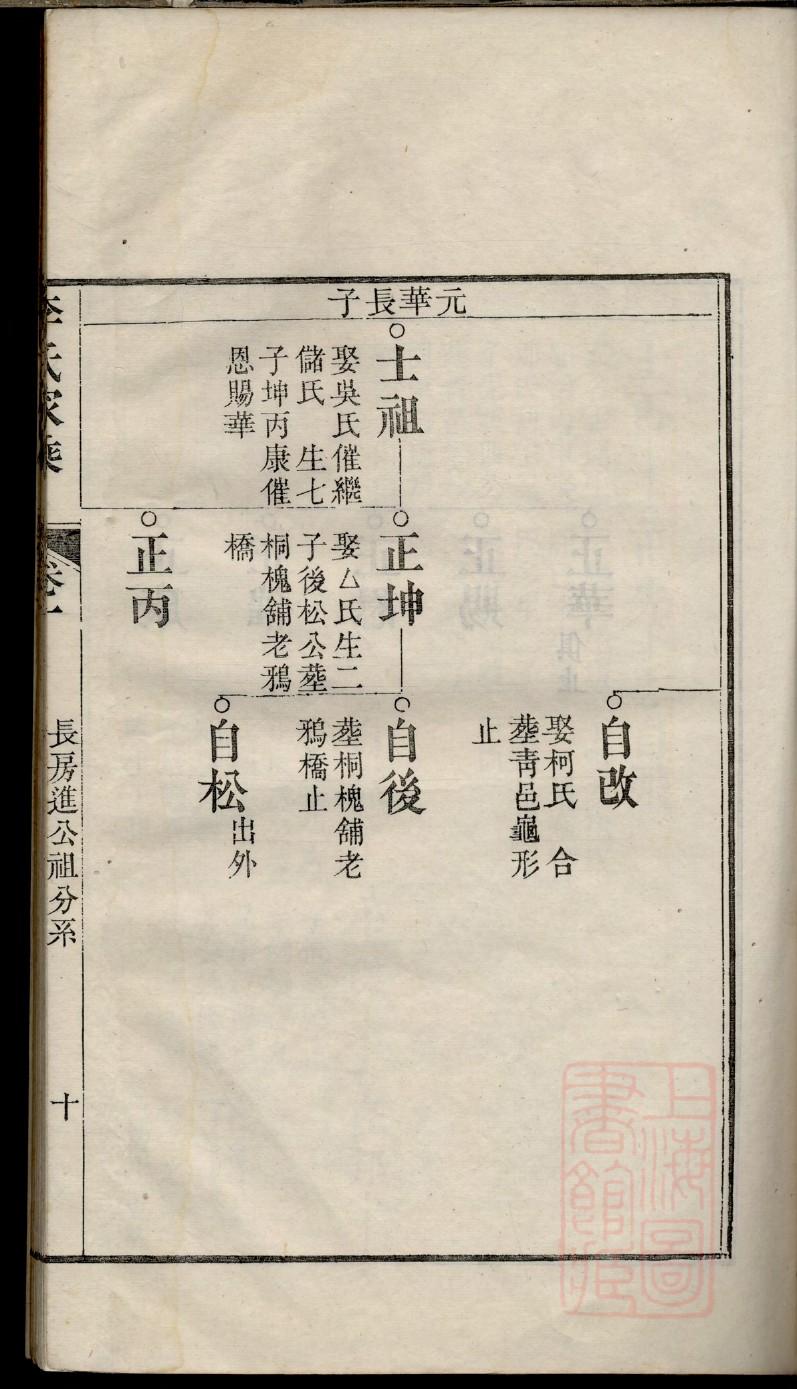 元華長子
士祖
娶吳氏催繼
儲氏　生七
子坤丙康催
恩賜華
自改
娶柯氏　合
塟靑邑龜形
止
正坤
娶厶氏生二
子後松公塟
桐槐舖老鴉
橋
自後
塟桐槐舖老
鴉橋止
自松
出外
正丙
李氏家乘
卷一
長房進公祖分系
十
上海圖
書館藏